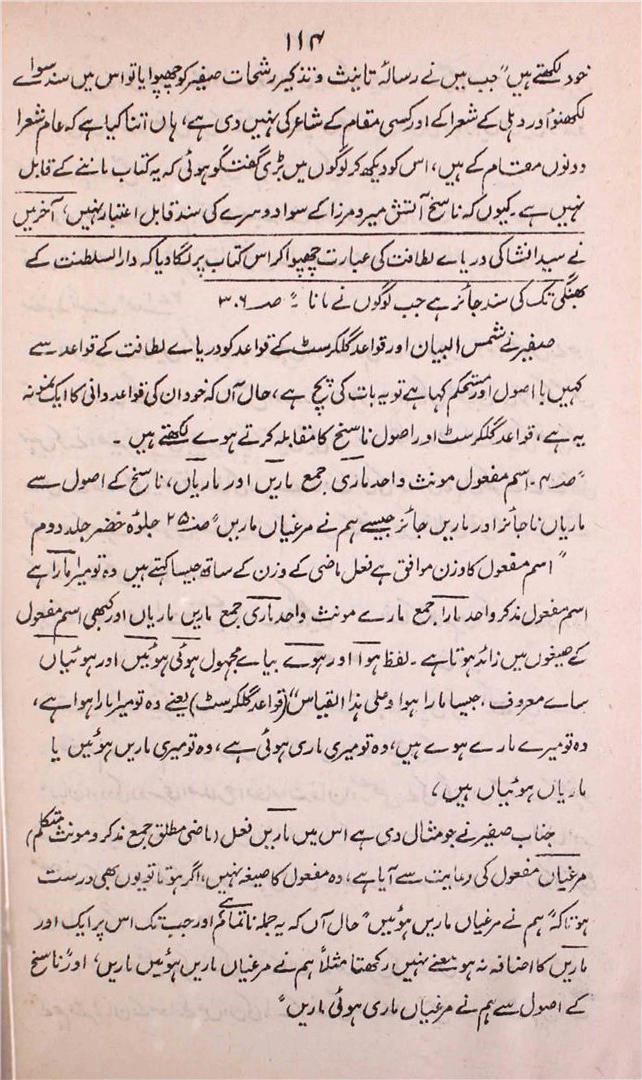 ۱۱۴
خود لکھتے ہیں ”جب میں نے رسالۂ تانیث و تذکیر رشحات صفیر کو چھپوایا تو اس میں سند سواے
لکھنؤ اور دہلی کے شعرا کے اور کسی مقام کے شاعر کی نہیں دی ہے، ہاں اتنا کیا ہے کہ عام شعرا
دونوں مقام کے ہیں، اس کو دیکھ کر لوگوں میں بڑی گفتگو ہوئی کہ یہ کتاب ماننے کے قابل
نہیں ہے۔ کیوں کہ ناسخ آتش میر و مرزا کے سوا دوسرے کی سند قابل اعتبار نہیں، آخر میں
نے سید انشا کی دریاے لطافت کی عبارت چھپوا کر اس کتاب پر لگا دیا کہ دار السلطنت کے
بھنگی تک کی سند جائز ہے جب لوگوں نے مانا ۔“ صـ ۳۰۶
صفیر نے شمس البیان اور قواعد گلکرسٹ کے قواعد کو دریاے لطافت کے قواعد سے
کہیں با اصول اور مستحکم کہا ہے تو یہ بات کی پچ ہے، حال آں کہ خود ان کی قواعد دانی کا ایک نمونہ
یہ ہے، قواعد گلکرسٹ اور اصول ناسخ کا مقابلہ کرتے ہوے لکھتے ہیں ۔
”صـ ۴۔ اسم مفعول مونث واحد ماری جمع ماریں اور ماریاں، ناسخ کے اصول سے
ماریاں ناجائز اور ماریں جائز جیسے ہم نے مرغیاں ماریں“ صـ ۲۵ جلوۂ خضر جلد دوم
”اسم مفعول کا وزن موافق ہے فعل ماضی کے وزن کے ساتھ جیسا کہتے ہیں وہ تو میرا مارا ہے
اسم مفعول مذکر واحد مارا جمع مارے مونث واحد ماری جمع ماریں ماریاں اور کبھی اسم مفعول
کے صیغوں میں زائد ہوتا ہے ۔ لفظ ہوا اور ہوے بیاے مجہول ہوئی ہوئیں اور ہوئیاں
ساے معروف، جیسا مارا ہوا وعلی ہذا القیاس“ (قواعد گلکرسٹ) یعنے وہ تو میرا مارا ہوا ہے،
وہ تو میرے مارے ہوے ہیں، وہ تو میری ماری ہوئی ہے، وہ تو میری ماریں ہوئیں یا
ماریاں ہوئیاں ہیں،
جناب صفیر نے جو مثال دی ہے اس میں ماریں فعل (ماضی مطلق جمع مذکر و مونث متکلم)
مرغیاں مفعول کی رعایت سے آیا ہے، وہ مفعول کا صیغہ نہیں، اگر ہوتا تو یوں بھی درست
ہوتا کہ ”ہم نے مرغیاں ماریں ہوئیں“ حال آں کہ یہ جملہ ناتمام ہے اور جب تک اس پر ایک اور
ماریں کا اضافہ نہ ہو معنے نہیں رکھتا مثلاً ہم نے مرغیاں ماریں ہوئیں ماریں، اور ناسخ
کے اصول سے ہم نے مرغیاں ماری ہوئی ماریں“